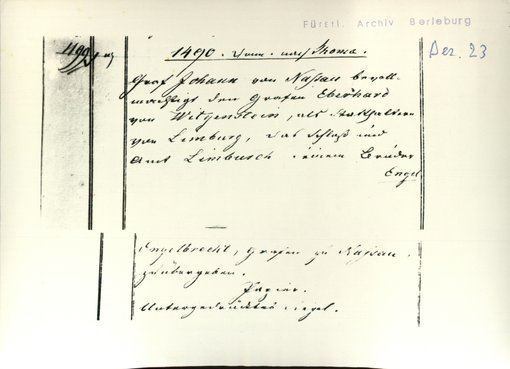 Fürstl. Archiv Berleburg
Dez. 23
1492
1490. Donn. nach Thoma.
Graf Johann von Nassau bevoll-
mächtigt den Grafen Eberhard
von Witgenstein, als Statthaltern
von Limburg, das Schloß und
Amt Limburg seinem Bruder
Engel
Engelbrecht, Grafen zu Nassau
zu übergeben.
Papier.
Untergedrucktes Siegel.